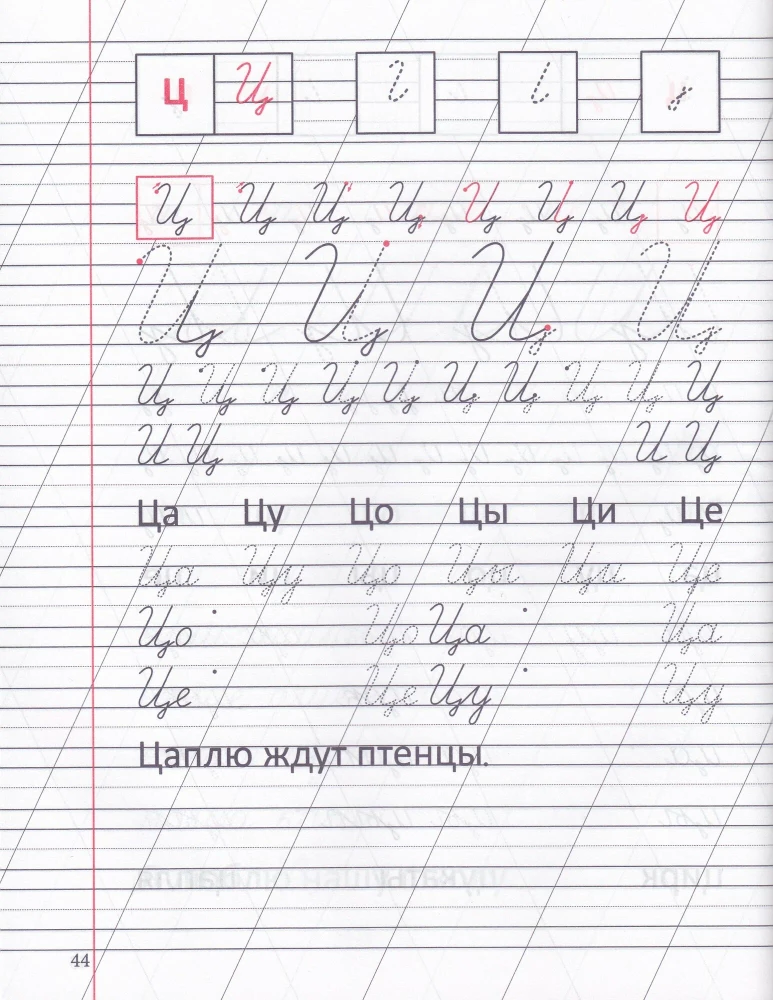 Ц Ц
Ц Ц Ц Ц Ц Ц Ц Ц
Ц Ц Ц Ц
Ц Ц Ц Ц Ц Ц Ц Ц Ц Ц
И Ц И Ц
Ца Цу Цо Цы Ци Це
Ца Цу Цо Цы Ци Це
Цо Цо Ца Ца
Це Це Цу Цу
Цаплю ждут птенцы.
44